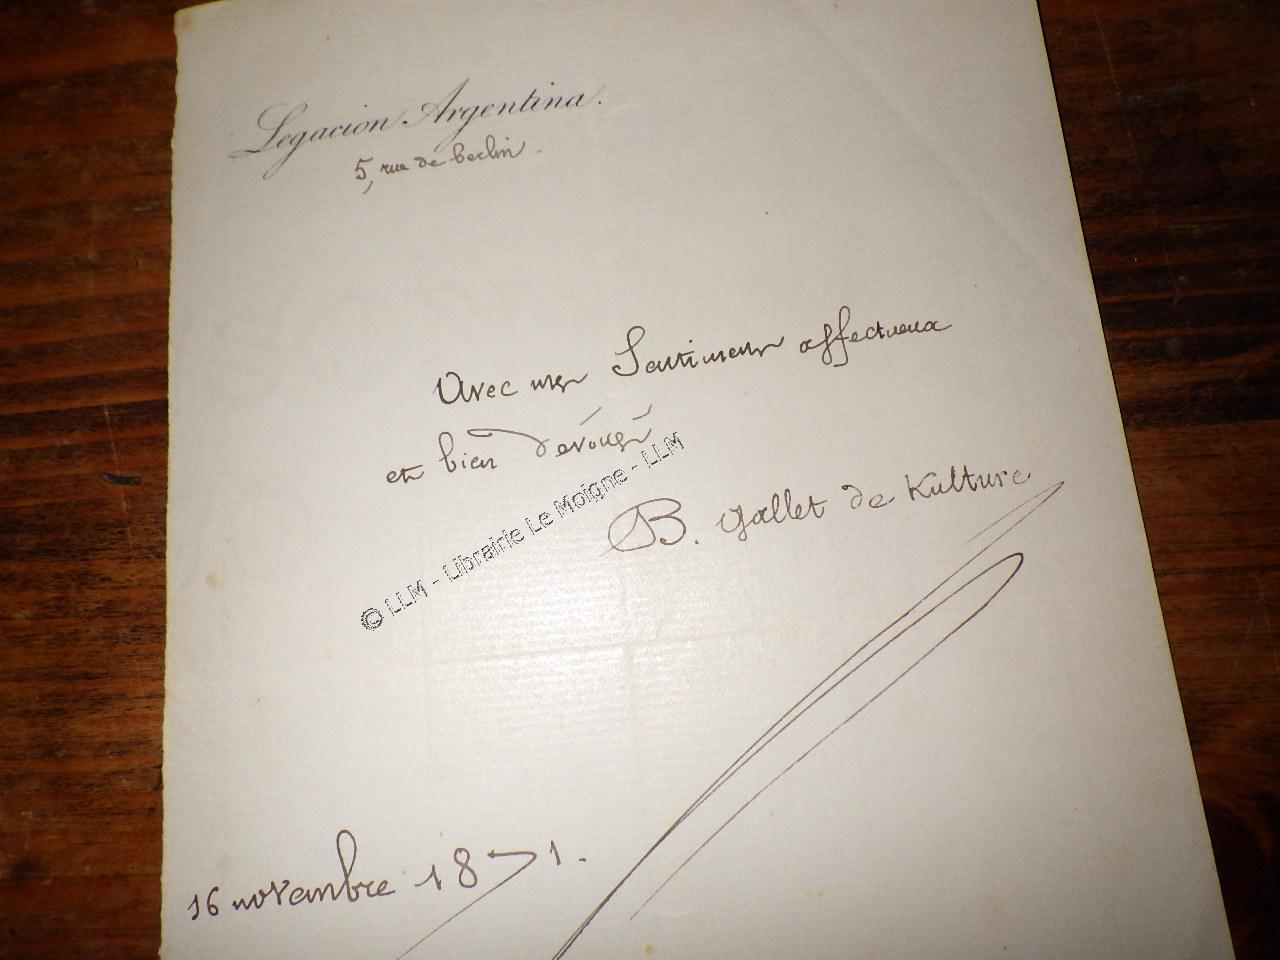 Legacion Argentina.
5, rue de berlin.
Avec mes Sentimens affectueux
et bien dévoués
© LLM - Librairie Le Moigne - LLM
B. gallet de Kulture
16 novembre 1871.